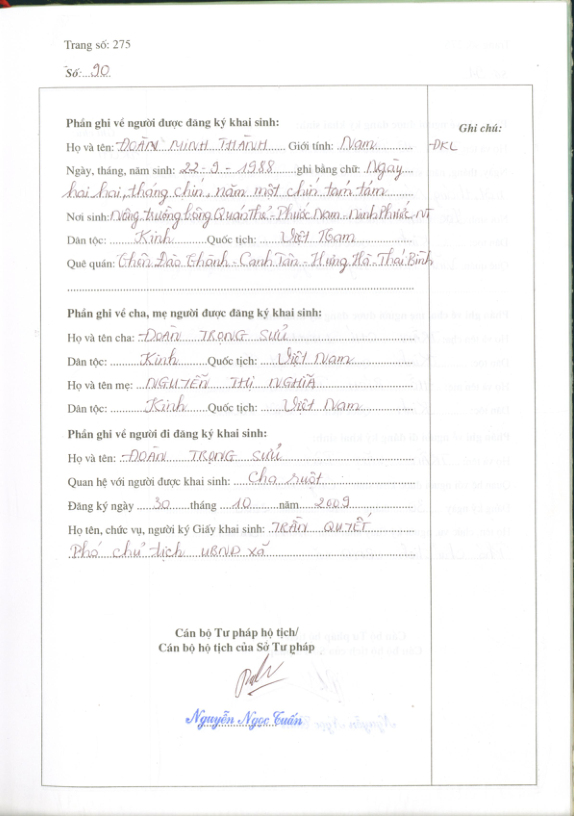 Trang số: 275
Số: 90
Phần ghi về người được đăng ký khai sinh:
Ghi chú:
Họ và tên: ĐOÀN MINH THÀNH Giới tính: Nam
ĐKL
Ngày, tháng, năm sinh: 22-9-1988 ghi bằng chữ: Ngày
hai hai, tháng chín, năm một chín tám tám
Nơi sinh: Nông trường bông Quán Thẻ - Phước Nam - Ninh Phước NT
Dân tộc: Kinh Quốc tịch: Việt Nam
Quê quán: Thôn Đào Thành - Canh Tân - Hưng Hà - Thái Bình
Phần ghi về cha, mẹ người được đăng ký khai sinh:
Họ và tên cha: ĐOÀN TRỌNG SỬU
Dân tộc: Kinh Quốc tịch: Việt Nam
Họ và tên mẹ: NGUYỄN THỊ NGHĨA
Dân tộc: Kinh Quốc tịch: Việt Nam
Phần ghi về người đi đăng ký khai sinh:
Họ và tên: ĐOÀN TRỌNG SỬU
Quan hệ với người được khai sinh: Cha ruột
Đăng ký ngày 30 tháng 10 năm 2009
Họ tên, chức vụ, người ký Giấy khai sinh: TRẦN QUYẾT
Phó chủ tịch UBND xã
Cán bộ Tư pháp hộ tịch/
Cán bộ hộ tịch của Sở Tư pháp
Nguyễn Ngọc Tuấn